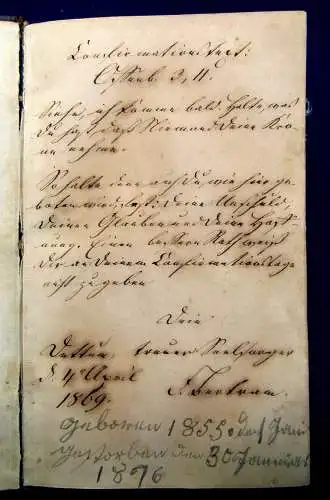 Confirmationstext:
Offenb. 3, 11.
Siehe, ich komme bald. Halte, was
Du hast, daß Niemand deine Kro-
ne nehme.
So halte denn auch Du, wie hier ge-
boten wird, fest: Deine Unschuld,
Deinen Glauben und Deine Hoff-
nung. Einen bessern Rath weiß
Dir an Deinem Confirmationstage
nicht zu geben
Dein
treuer Seelsorger
d. 4 April
1869.
F. Bertram.
geboren 1855 den Juni
gestorben den 30 Januar
1876